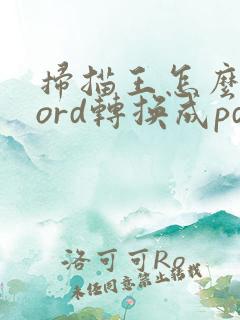 掃描王怎麼
ord轉換成pd
洛可可Ro
未任同意禁止转载